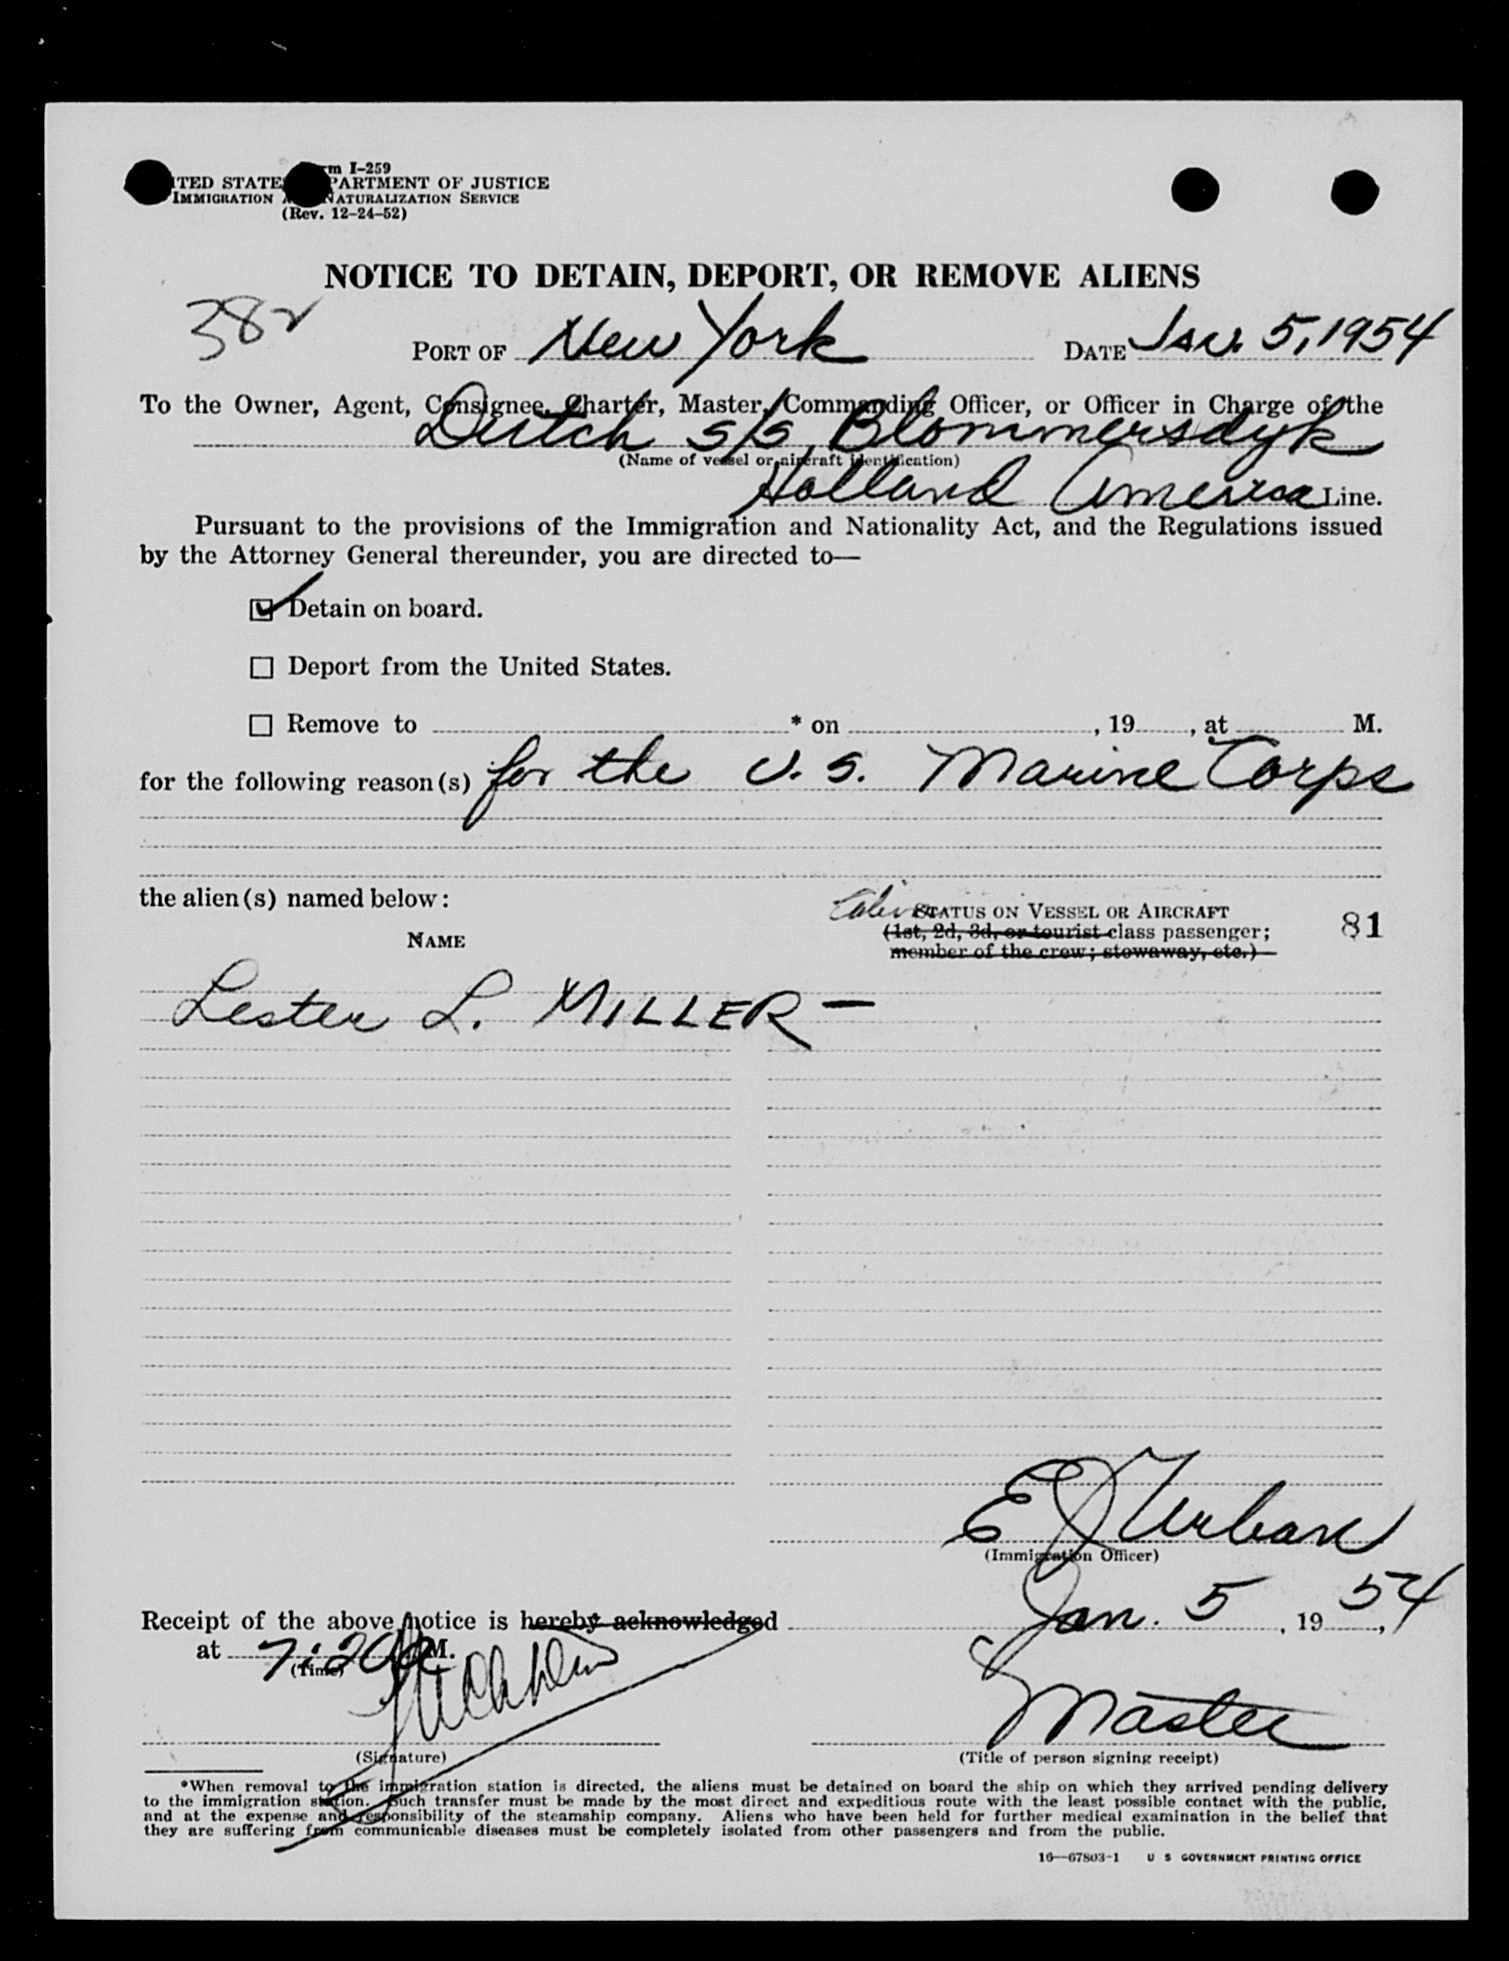 Form I-259
UNITED STATES DEPARTMENT OF JUSTICE
IMMIGRATION AND NATURALIZATION SERVICE
(Rev. 12-24-52)
NOTICE TO DETAIN, DEPORT, OR REMOVE ALIENS
382
PORT OF New York DATE Jan. 5, 1954
To the Owner, Agent, Consignee, Charter, Master, Commanding Officer, or Officer in Charge of the
Dutch s/s Blommersdyk
(Name of vessel or aircraft identification)
Holland America Line.
Pursuant to the provisions of the Immigration and Nationality Act, and the Regulations issued
by the Attorney General thereunder, you are directed to—
☑ Detain on board.
☐ Deport from the United States.
☐ Remove to * on , 19 , at M.
for the following reason(s) for the U.S. Marine Corps
the alien(s) named below:
STATUS ON VESSEL OR AIRCRAFT
81
(1st, 2d, 3d, or tourist class passenger;
NAME
member of the crew; stowaway, etc.)
Lester L. MILLER —
E J Urban
(Immigration Officer)
Receipt of the above notice is hereby acknowledged Jan. 5, 1954,
at 7:20 a M.
(Time)
Master
(Signature)
(Title of person signing receipt)
*When removal to the immigration station is directed, the aliens must be detained on board the ship on which they arrived pending delivery
to the immigration station. Such transfer must be made by the most direct and expeditious route with the least possible contact with the public,
and at the expense and responsibility of the steamship company. Aliens who have been held for further medical examination in the belief that
they are suffering from communicable diseases must be completely isolated from other passengers and from the public.
16—67803-1 U S GOVERNMENT PRINTING OFFICE